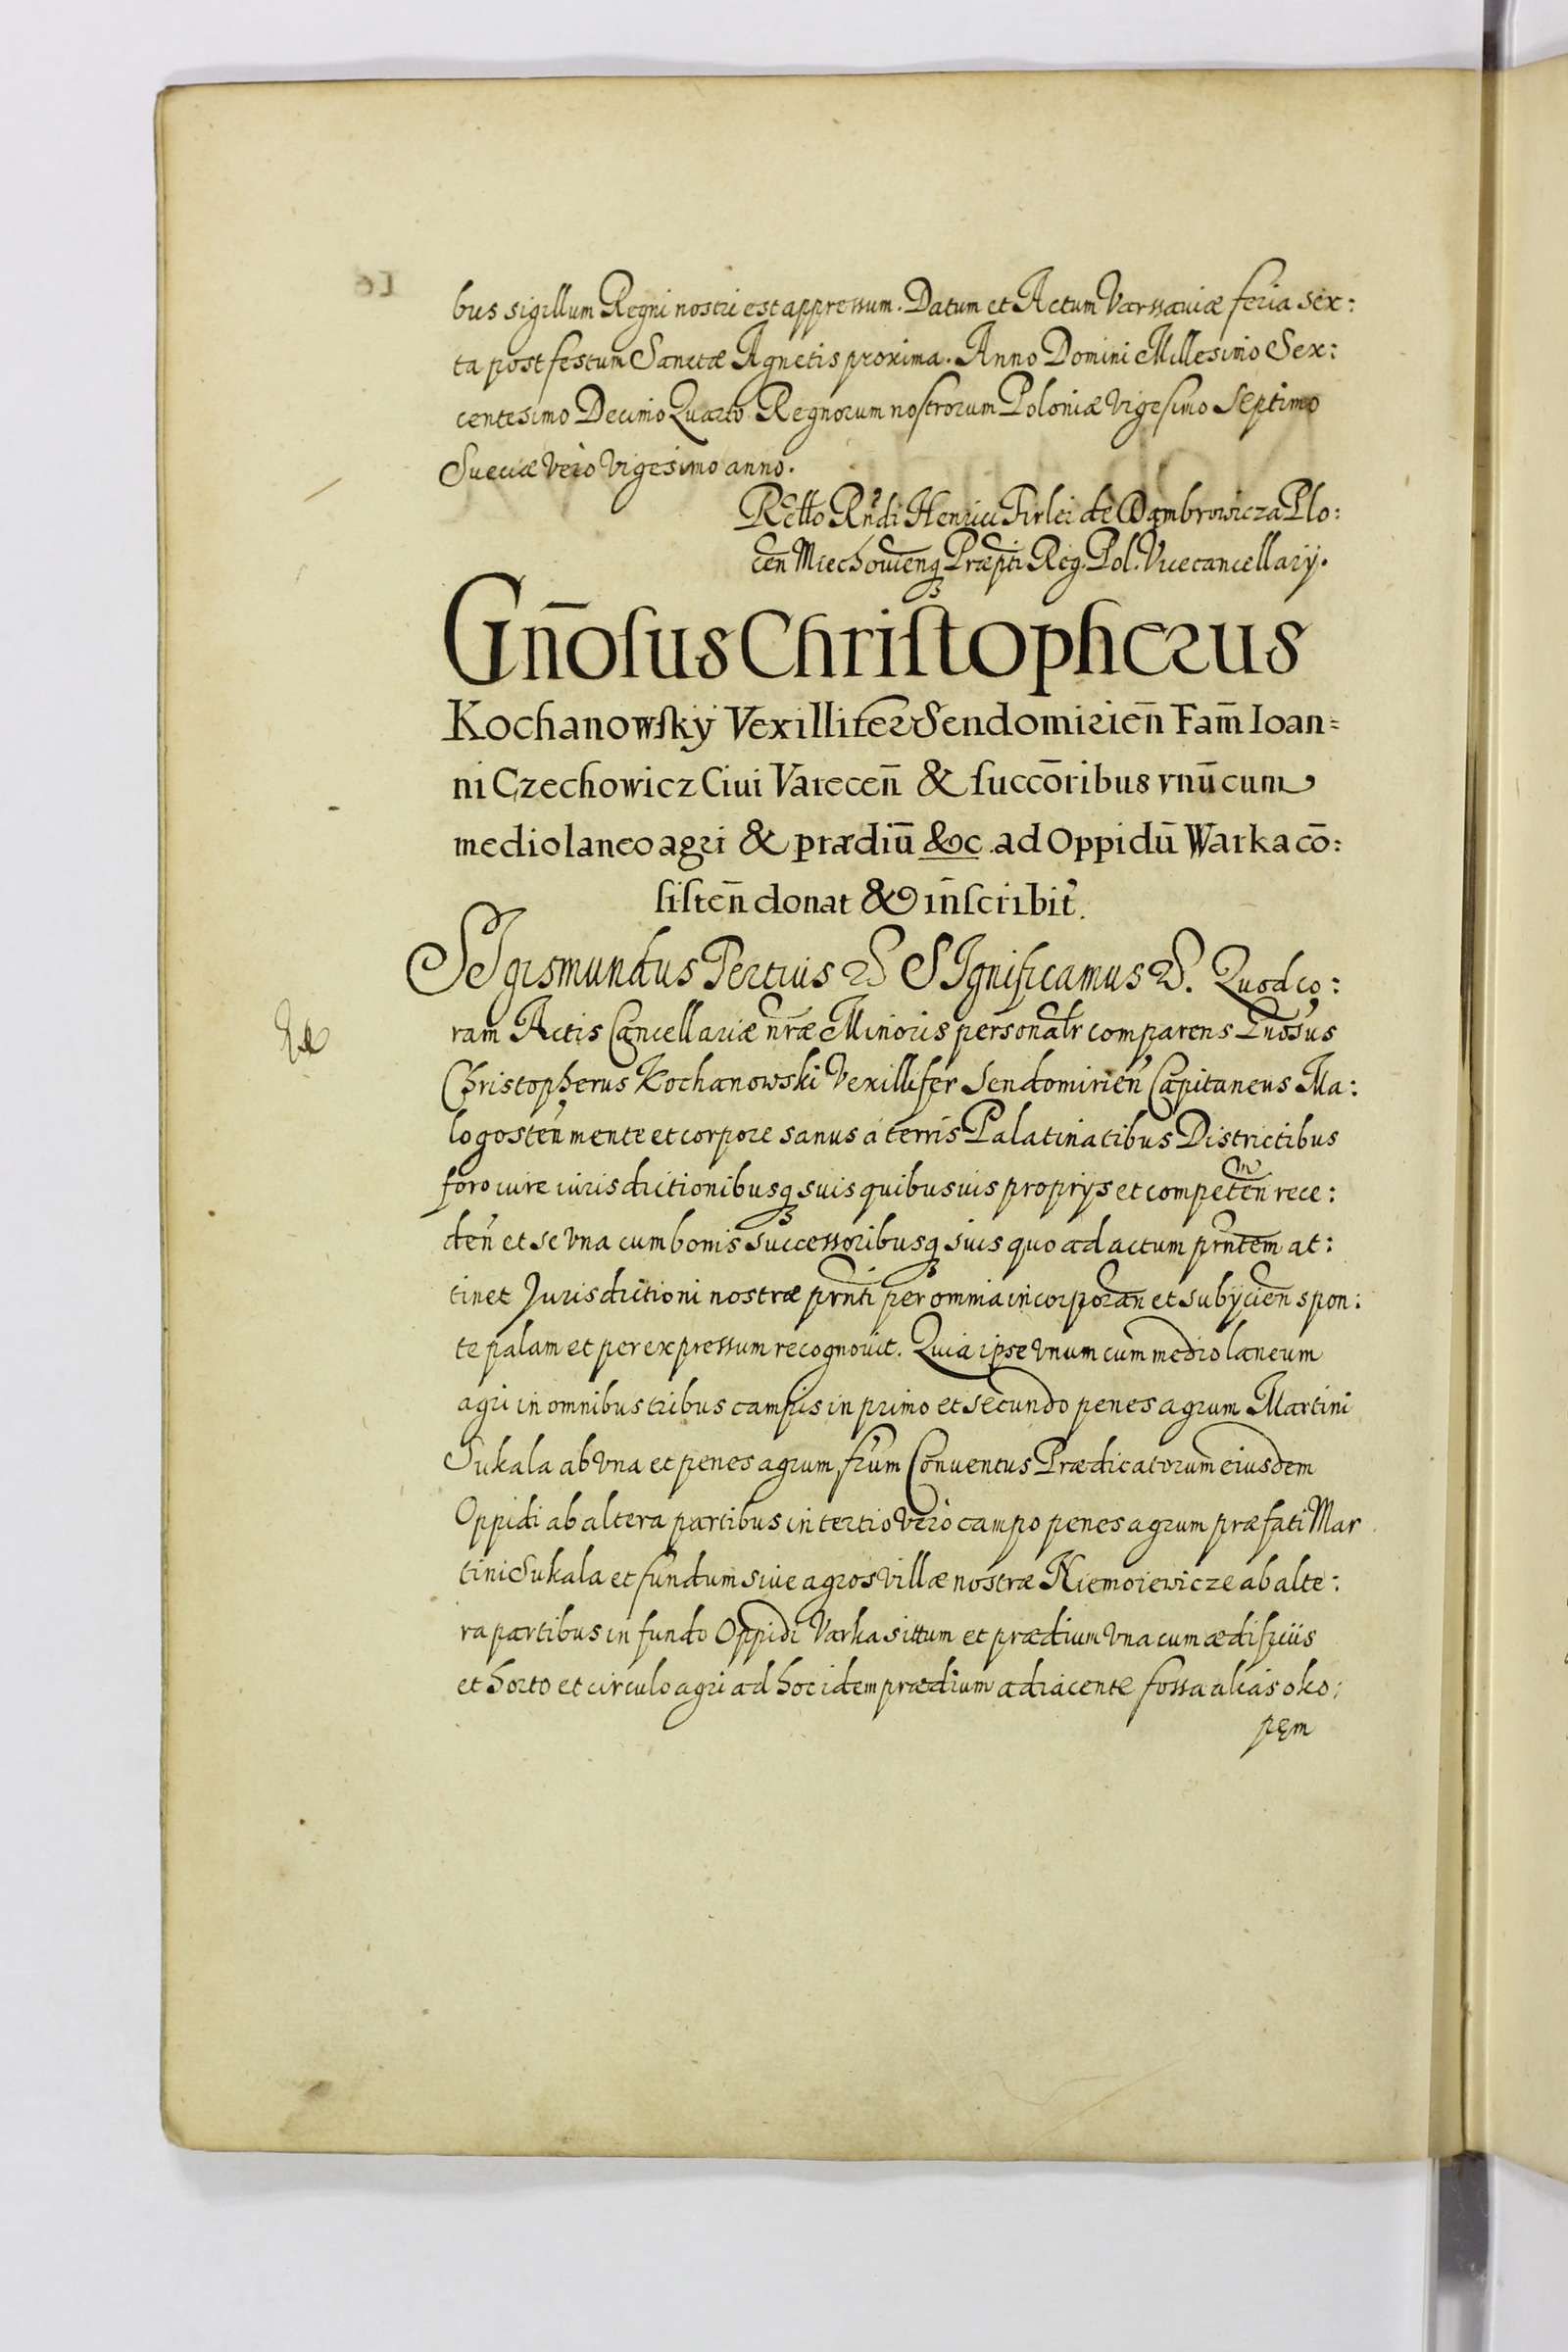 bus sigillum Regni nostri est appressum. Datum et Actum Varssaviæ feria sex:
ta post festum Sanctæ Agnetis proxima. Anno Domini Millesimo Sex:
centesimo Decimo Quarto Regnorum nostrorum Poloniæ Vigesimo Septimo
Sueciæ Vero Vigesimo anno.
Rñdi Henrici Firlei de Dąmbrowicza Plo:
cen̄ Miechovien̄q Præpti Reg. Pol. Vicecancellarÿ.
Gn̄osus Christopherus
Kochanowskÿ Vexillifer Sendomirien̄ Fam̄ Ioan=
ni Czechowicz Ciui Varecen̄ & succōribus vnū cum
mediolaneo agri & prædiū &c. ad Oppidū Warka cō:
sisten̄ donat & in̄scribit.
SIgismundus Tertius &. SIgnificamus &. Quod co:
ram Actis Cancellariæ n̄ræ Minoris personalr comparens Gnosus
Christopherus Kochanowski Vexillifer Sendomirien̄ Capitaneus Ma:
logosten̄ mente et corpore sanus a terris Palatinatibus Districtibus
foro iure iurisdictionibusq suis quibusuis proprÿs et competen̄ rece:
den̄ et se Vna cum bonis successoribusq suis quo ad actum prn̄tem at:
tinet Jurisdictioni nostræ prn̄ti per omnia incorporan̄ et subÿcien̄ spon:
te palam et per expressum recognouit. Quia ipse Vnum cum mediolaneum
agri in omnibus tribus campis in primo et secundo penes agrum Martini
Sukala ab Vna et penes agrum fr̄um Conuentus Prædicatorum eiusdem
Oppidi ab altera partibus in tertio Verò campo penes agrum præfati Mar
tini Sukala et fundum siue agros villæ nostræ Niemoiewicze ab alte:
ra partibus in fundo Oppidi Varka sittum et prædium Vna cum ædificiis
et horto et circulo agri ad hoc idem prædium adiacente fossa alias oko:
pęm